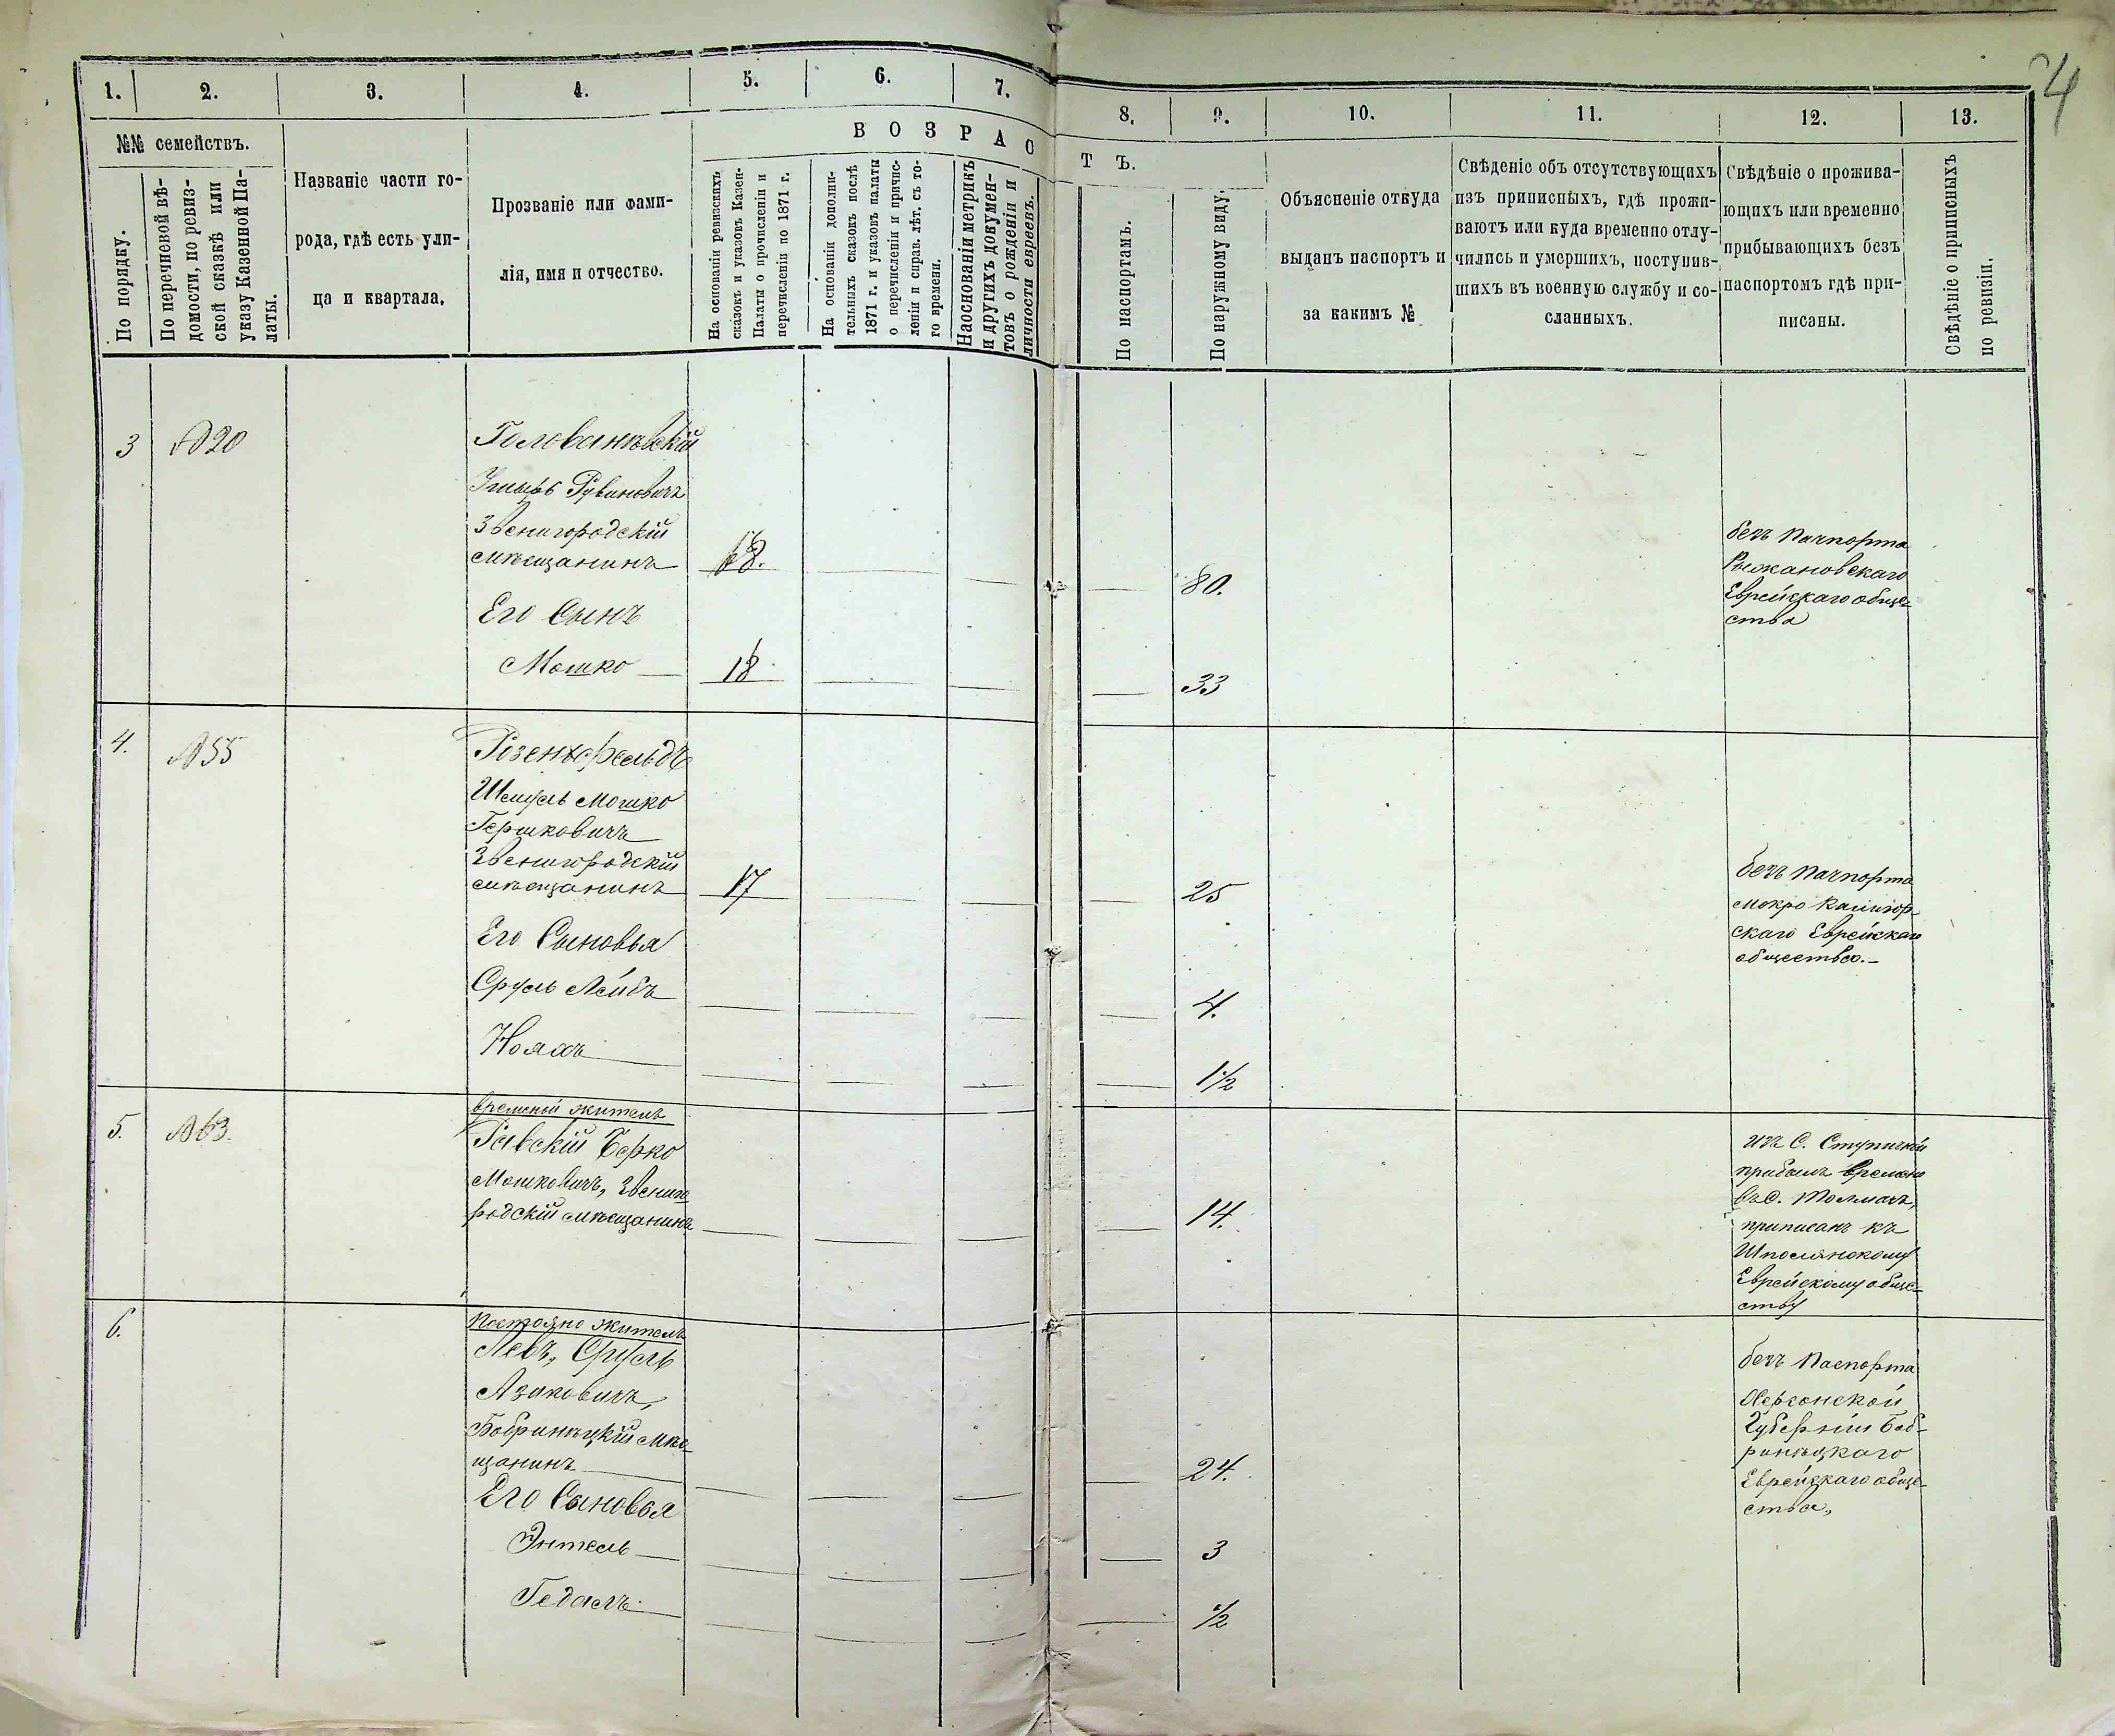 4
1. 2. 3. 4. 5. 6. 7. 8. 9. 10. 11. 12. 13.
№№ семействъ.
По порядку.
По перечневой вѣ-
домости, по ревиз-
ской сказкѣ или
указу Казенной Па-
латы.
Названіе части го-
рода, гдѣ есть ули-
ца и квартала.
Прозваніе или фами-
лія, имя и отчество.
ВОЗРАСТЪ.
На основаніи ревизскихъ
сказокъ и указовъ Казен-
Палаты о прочисленіи и
перечисленіи по 1871 г.
На основаніи дополни-
тельныхъ сказокъ послѣ
1871 г. и указовъ палаты
о перечисленіи и причис-
леніи и справ. лѣт. съ то-
го времени.
На основаніи метрикъ
и другихъ докумен-
товъ о рожденіи и
личности евреевъ.
По паспортамъ.
По наружному виду.
Объясненіе откуда
выданъ паспортъ и
за какимъ №
Свѣденіе объ отсутствующихъ
изъ приписныхъ, гдѣ прожи-
ваютъ или куда временно отлу-
чились и умершихъ, поступив-
шихъ въ военную службу и со-
сланныхъ.
Свѣдѣніе о прожива-
ющихъ или временно
прибывающихъ безъ
паспортомъ гдѣ при-
писаны.
Свѣдѣніе о приписныхъ
по ревизіи.
3 №20 Голованѣвскій
Рувиновичъ
Звенигородскій
мѣщанинъ 68. 80.
безъ пачпорта
Рыжановскаго
Еврейскаго обще-
ства
Его Сынъ
Мошко 18 33
4. №55 Розенфельдъ
Шмуль Мошко
Гершковичъ
Звенигородскій
мѣщанинъ 17 25
безъ пачпорта
мокро Калигор-
скаго Еврейскаго
общества.
Его Сыновья
Сруль Лейбъ 4.
Ноахъ 1½
5. №63. временой житель
Равскій Берко
Мошковичъ, Звениго
родскій мѣщанинъ 14.
изъ С. Ступичной
прибылъ времено
въ С. Толмачъ,
приписанъ къ
Шполянскому
Еврейскому обще-
ству
6. Постояно житель
Левъ, Сруль
Азиковичъ,
Бобринѣцкій мѣ-
щанинъ 24.
безъ Паспорта
Херсонской
Губерніи Боб-
ринѣцкаго
Еврейскаго обще-
ства,
Его Сыновья
Энтель 3
Гедалъ ½